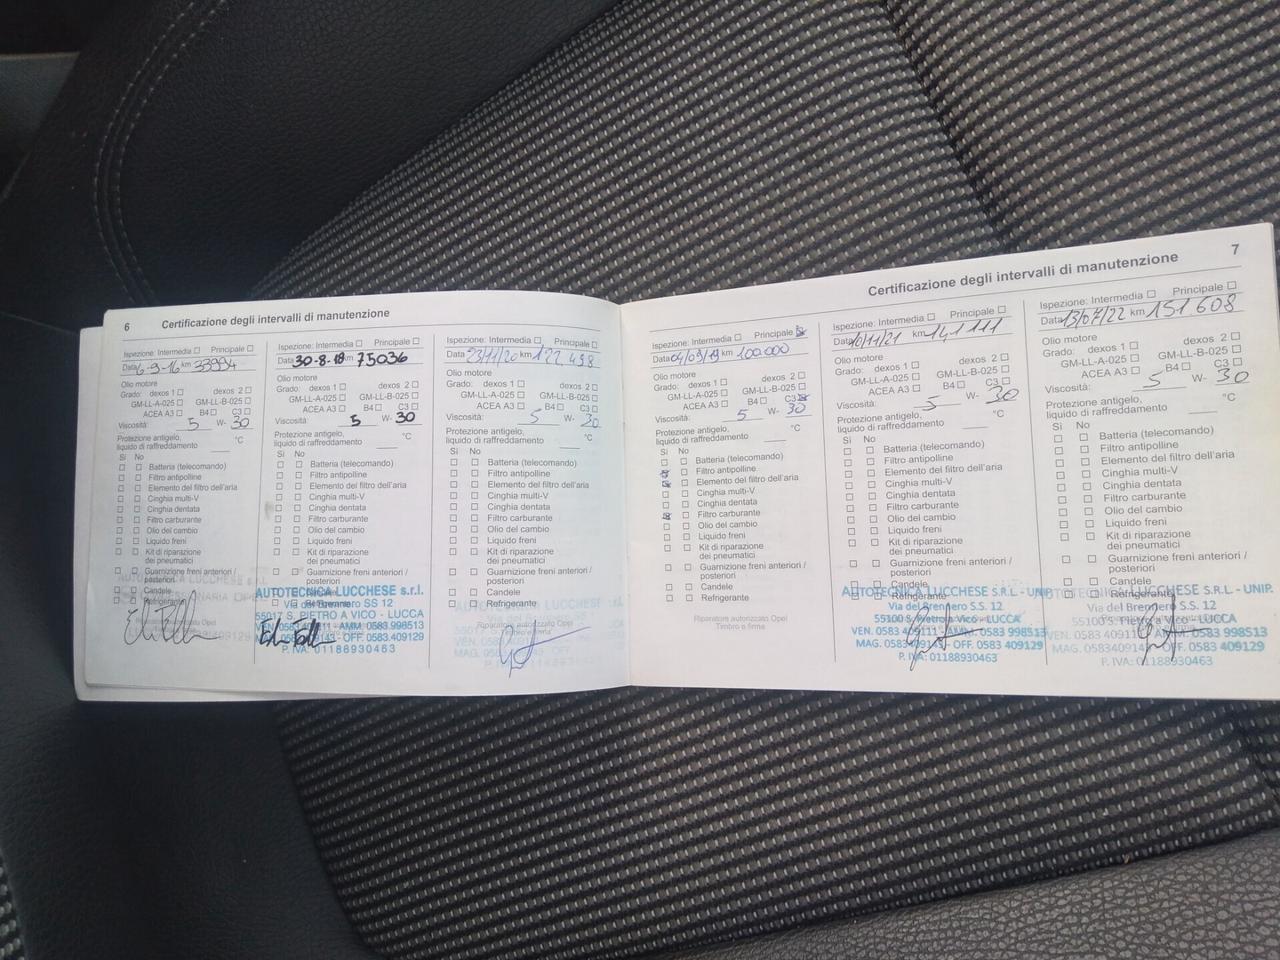 6
Certificazione degli intervalli di manutenzione
Ispezione: Intermedia ☐ Principale ☐
Data 6-9-16 km 33994
Olio motore
Grado: dexos 1 ☐ dexos 2 ☐
GM-LL-A-025 ☐ GM-LL-B-025 ☐
ACEA A3 ☐ B4 ☐ C3 ☐
Viscosità: 5 W- 30
Protezione antigelo,
liquido di raffreddamento °C
Sì No
☐ ☐ Batteria (telecomando)
☐ ☐ Filtro antipolline
☐ ☐ Elemento del filtro dell'aria
☐ ☐ Cinghia multi-V
☐ ☐ Cinghia dentata
☐ ☐ Filtro carburante
☐ ☐ Olio del cambio
☐ ☐ Liquido freni
☐ ☐ Kit di riparazione
dei pneumatici
☐ ☐ Guarnizione freni anteriori /
posteriori
☐ ☐ Candele
☐ ☐ Refrigerante
Ispezione: Intermedia ☐ Principale ☐
Data 30-8-18 km 75036
Olio motore
Grado: dexos 1 ☐ dexos 2 ☐
GM-LL-A-025 ☐ GM-LL-B-025 ☐
ACEA A3 ☐ B4 ☐ C3 ☐
Viscosità: 5 W- 30
Protezione antigelo,
liquido di raffreddamento °C
Sì No
☐ ☐ Batteria (telecomando)
☐ ☐ Filtro antipolline
☐ ☐ Elemento del filtro dell'aria
☐ ☐ Cinghia multi-V
☐ ☐ Cinghia dentata
☐ ☐ Filtro carburante
☐ ☐ Olio del cambio
☐ ☐ Liquido freni
☐ ☐ Kit di riparazione
dei pneumatici
☐ ☐ Guarnizione freni anteriori /
posteriori
AUTOTECNICA LUCCHESE s.r.l.
Via del Brennero SS 12
55017 S. PIETRO A VICO - LUCCA
VEN. 0583 409111 - AMM. 0583 998513
OFF. 0583.409129
P. IVA: 01188930463
Ispezione: Intermedia ☐ Principale ☐
Data 23/11/20 km 122.498
Olio motore
Grado: dexos 1 ☐ dexos 2 ☐
GM-LL-A-025 ☐ GM-LL-B-025 ☐
ACEA A3 ☐ B4 ☐ C3 ☐
Viscosità: 5 W- 30
Protezione antigelo,
liquido di raffreddamento °C
Sì No
☐ ☐ Batteria (telecomando)
☐ ☐ Filtro antipolline
☐ ☐ Elemento del filtro dell'aria
☐ ☐ Cinghia multi-V
☐ ☐ Cinghia dentata
☐ ☐ Filtro carburante
☐ ☐ Olio del cambio
☐ ☐ Liquido freni
☐ ☐ Kit di riparazione
dei pneumatici
☐ ☐ Guarnizione freni anteriori /
posteriori
☐ ☐ Candele
☐ ☐ Refrigerante
Riparatore autorizzato Opel
7
Certificazione degli intervalli di manutenzione
Ispezione: Intermedia ☐ Principale ☒
Data 04/09/19 km 100.000
Olio motore
Grado: dexos 1 ☐ dexos 2 ☐
GM-LL-A-025 ☐ GM-LL-B-025 ☐
ACEA A3 ☐ B4 ☐ C3 ☒
Viscosità: 5 W- 30
Protezione antigelo,
liquido di raffreddamento °C
Sì No
☐ ☐ Batteria (telecomando)
☒ ☐ Filtro antipolline
☒ ☐ Elemento del filtro dell'aria
☐ ☐ Cinghia multi-V
☐ ☐ Cinghia dentata
☒ ☐ Filtro carburante
☐ ☐ Olio del cambio
☐ ☐ Liquido freni
☐ ☐ Kit di riparazione
dei pneumatici
☐ ☐ Guarnizione freni anteriori /
posteriori
☐ ☐ Candele
☐ ☐ Refrigerante
Riparatore autorizzato Opel
Timbro e firma
Ispezione: Intermedia ☐ Principale ☐
Data 10/11/21 km 141111
Olio motore
Grado: dexos 1 ☐ dexos 2 ☐
GM-LL-A-025 ☐ GM-LL-B-025 ☐
ACEA A3 ☐ B4 ☐ C3 ☐
Viscosità: 5 W- 30
Protezione antigelo,
liquido di raffreddamento °C
Sì No
☐ ☐ Batteria (telecomando)
☐ ☐ Filtro antipolline
☐ ☐ Elemento del filtro dell'aria
☐ ☐ Cinghia multi-V
☐ ☐ Cinghia dentata
☐ ☐ Filtro carburante
☐ ☐ Olio del cambio
☐ ☐ Liquido freni
☐ ☐ Kit di riparazione
dei pneumatici
☐ ☐ Guarnizione freni anteriori /
posteriori
☐ ☐ Candele
☐ ☐ Refrigerante
AUTOTECNICA LUCCHESE S.R.L. - UNIP.
Via del Brennero S.S. 12
55100 S. Pietro a Vico - LUCCA
VEN. 0583 409111 - AMM. 0583 998513
MAG. 0583409143 - OFF. 0583 409129
P. IVA: 01188930463
Ispezione: Intermedia ☐ Principale ☐
Data 13/07/22 km 151.608
Olio motore
Grado: dexos 1 ☐ dexos 2 ☐
GM-LL-A-025 ☐ GM-LL-B-025 ☐
ACEA A3 ☐ B4 ☐ C3 ☐
Viscosità: 5 W- 30
Protezione antigelo,
liquido di raffreddamento °C
Sì No
☐ ☐ Batteria (telecomando)
☐ ☐ Filtro antipolline
☐ ☐ Elemento del filtro dell'aria
☐ ☐ Cinghia multi-V
☐ ☐ Cinghia dentata
☐ ☐ Filtro carburante
☐ ☐ Olio del cambio
☐ ☐ Liquido freni
☐ ☐ Kit di riparazione
dei pneumatici
☐ ☐ Guarnizione freni anteriori /
posteriori
☐ ☐ Candele
☐ ☐ Refrigerante
AUTOTECNICA LUCCHESE S.R.L. - UNIP.
Via del Brennero S.S. 12
55100 S. Pietro a Vico - LUCCA
VEN. 0583 409111 - AMM. 0583 998513
MAG. 0583409143 - OFF. 0583 409129
P. IVA: 01188930463